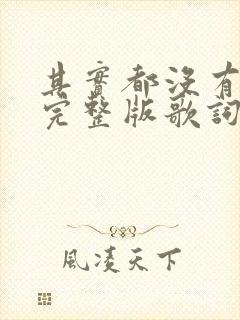 其實都沒有
完整版歌詞
風凌天下